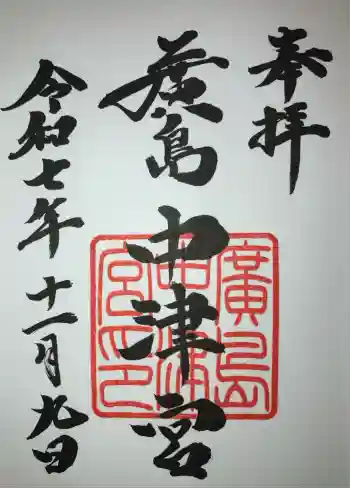 奉拝
廣島 中津宮
令和七年十一月九日
廣島
中津
宮印